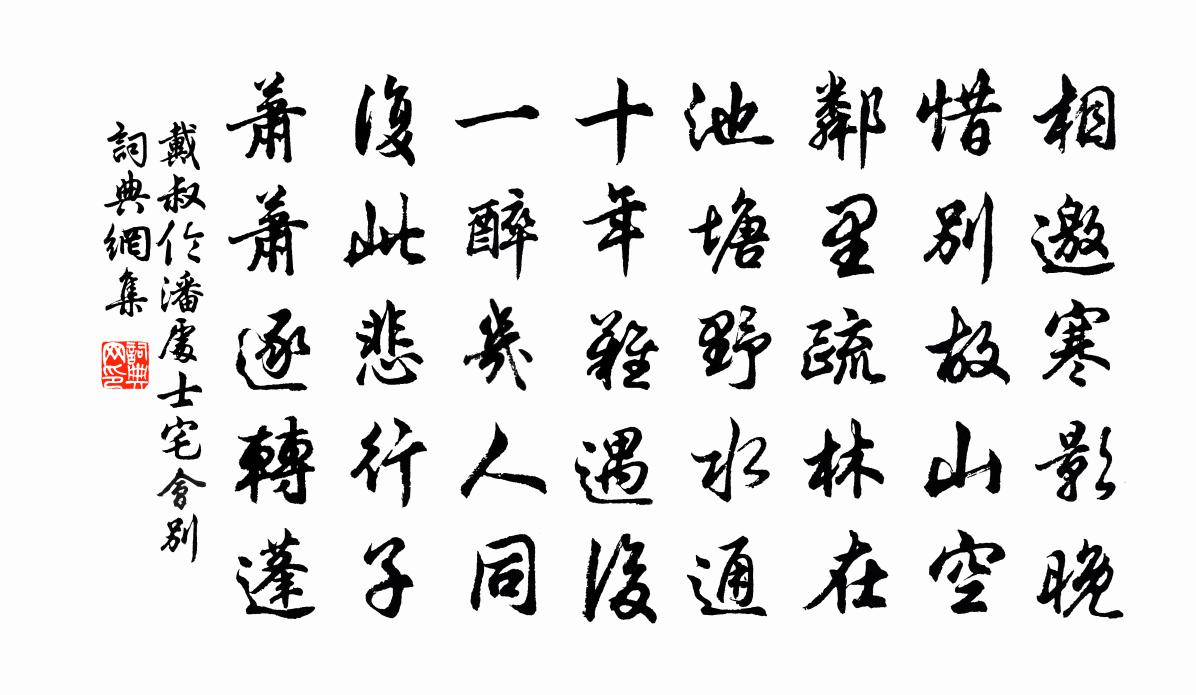 相邀寒影晚
惜別故山空
鄰里疏林在
池塘野水通
十年難遇後
一醉幾人同
復此悲行子
蕭蕭逐轉蓬
戴叔伦潘處士宅會別
詞典網集
詞典
网印